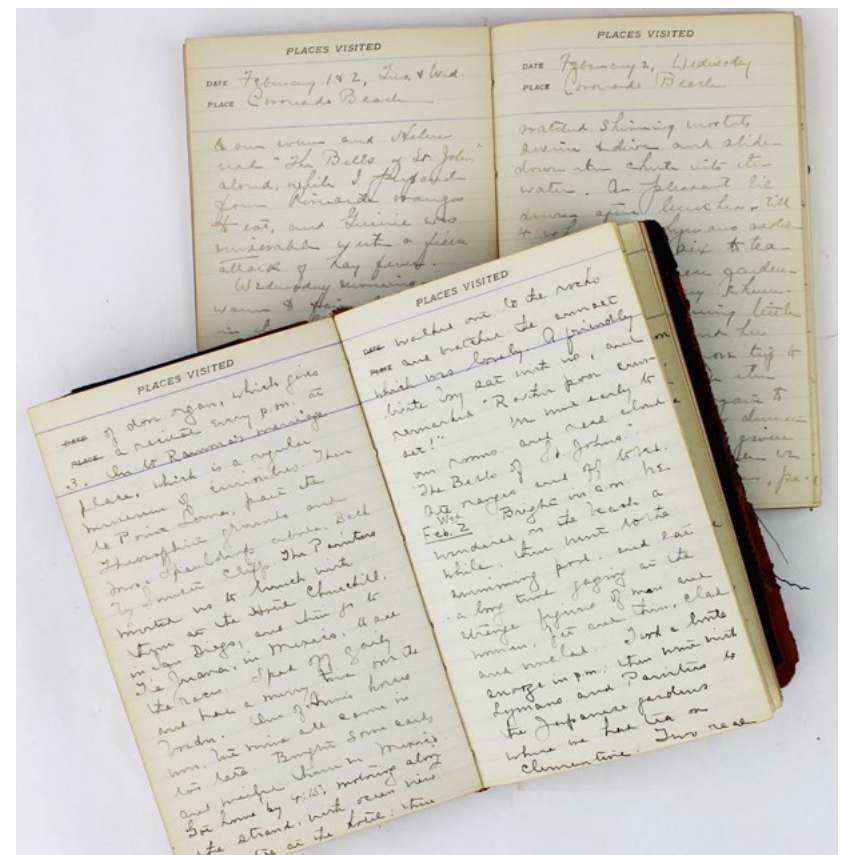 PLACES VISITED
DATE February 1 & 2, Tues. & Wed.
PLACE Coronado Beach
to our room and Helen
read "The Bells of St. John's,"
aloud, while I prepared
four Riverside oranges
to eat, and Guinie was
miserable with a fierce
attack of hay fever.
Wednesday morning
PLACES VISITED
DATE February 2, Wednesday
PLACE Coronado Beach
watched shining mortals
swim & dive and slide
down the chute into the
water. A pleasant lie
down after luncheon, till
Lymans asked
to tea
garden
little
her
to
PLACES VISITED
DATE of door organ, which gives
PLACE a recital every p.m. at
3. On to Ramona's marriage
place, which is a regular
museum of curiosities. Then
to Point Loma, past the
Theosophist grounds and
Mrs. Spaulding's abode. Back
by Sunset Cliffs. The Painters
invited us to lunch with
them at the Hotel Churchill,
in San Diego, and then go to
Tia Juana, in Mexico, to see
the races. Sped off gaily
and had a merry time over the
border. One of Ann's horses
won, but mine all came in
too late. Bought some cards
and mailed them in Mexico.
Got home by 4:15, motoring along
the strand, with ocean view.
tea at the hotel: then
PLACES VISITED
DATE walked out to the rocks
PLACE and watched the sunset
which was lovely. A friendly
little boy sat with us, and
remarked "Rather poor sun-
set!" We went early to
our rooms and read aloud
"The Bells of St. Johns."
Ate oranges and off to bed.
Wed.
Feb. 2 Bright in a.m. We
wandered on the beach a
while, then went to the
swimming pool, and sat
a long time gazing at the
strange figures of men and
women, fat and thin, clad
and unclad. Took a little
snooze in p.m.; then went with
Lymans and Painters to
the Japanese gardens
where we had tea on
Clementine. Two real